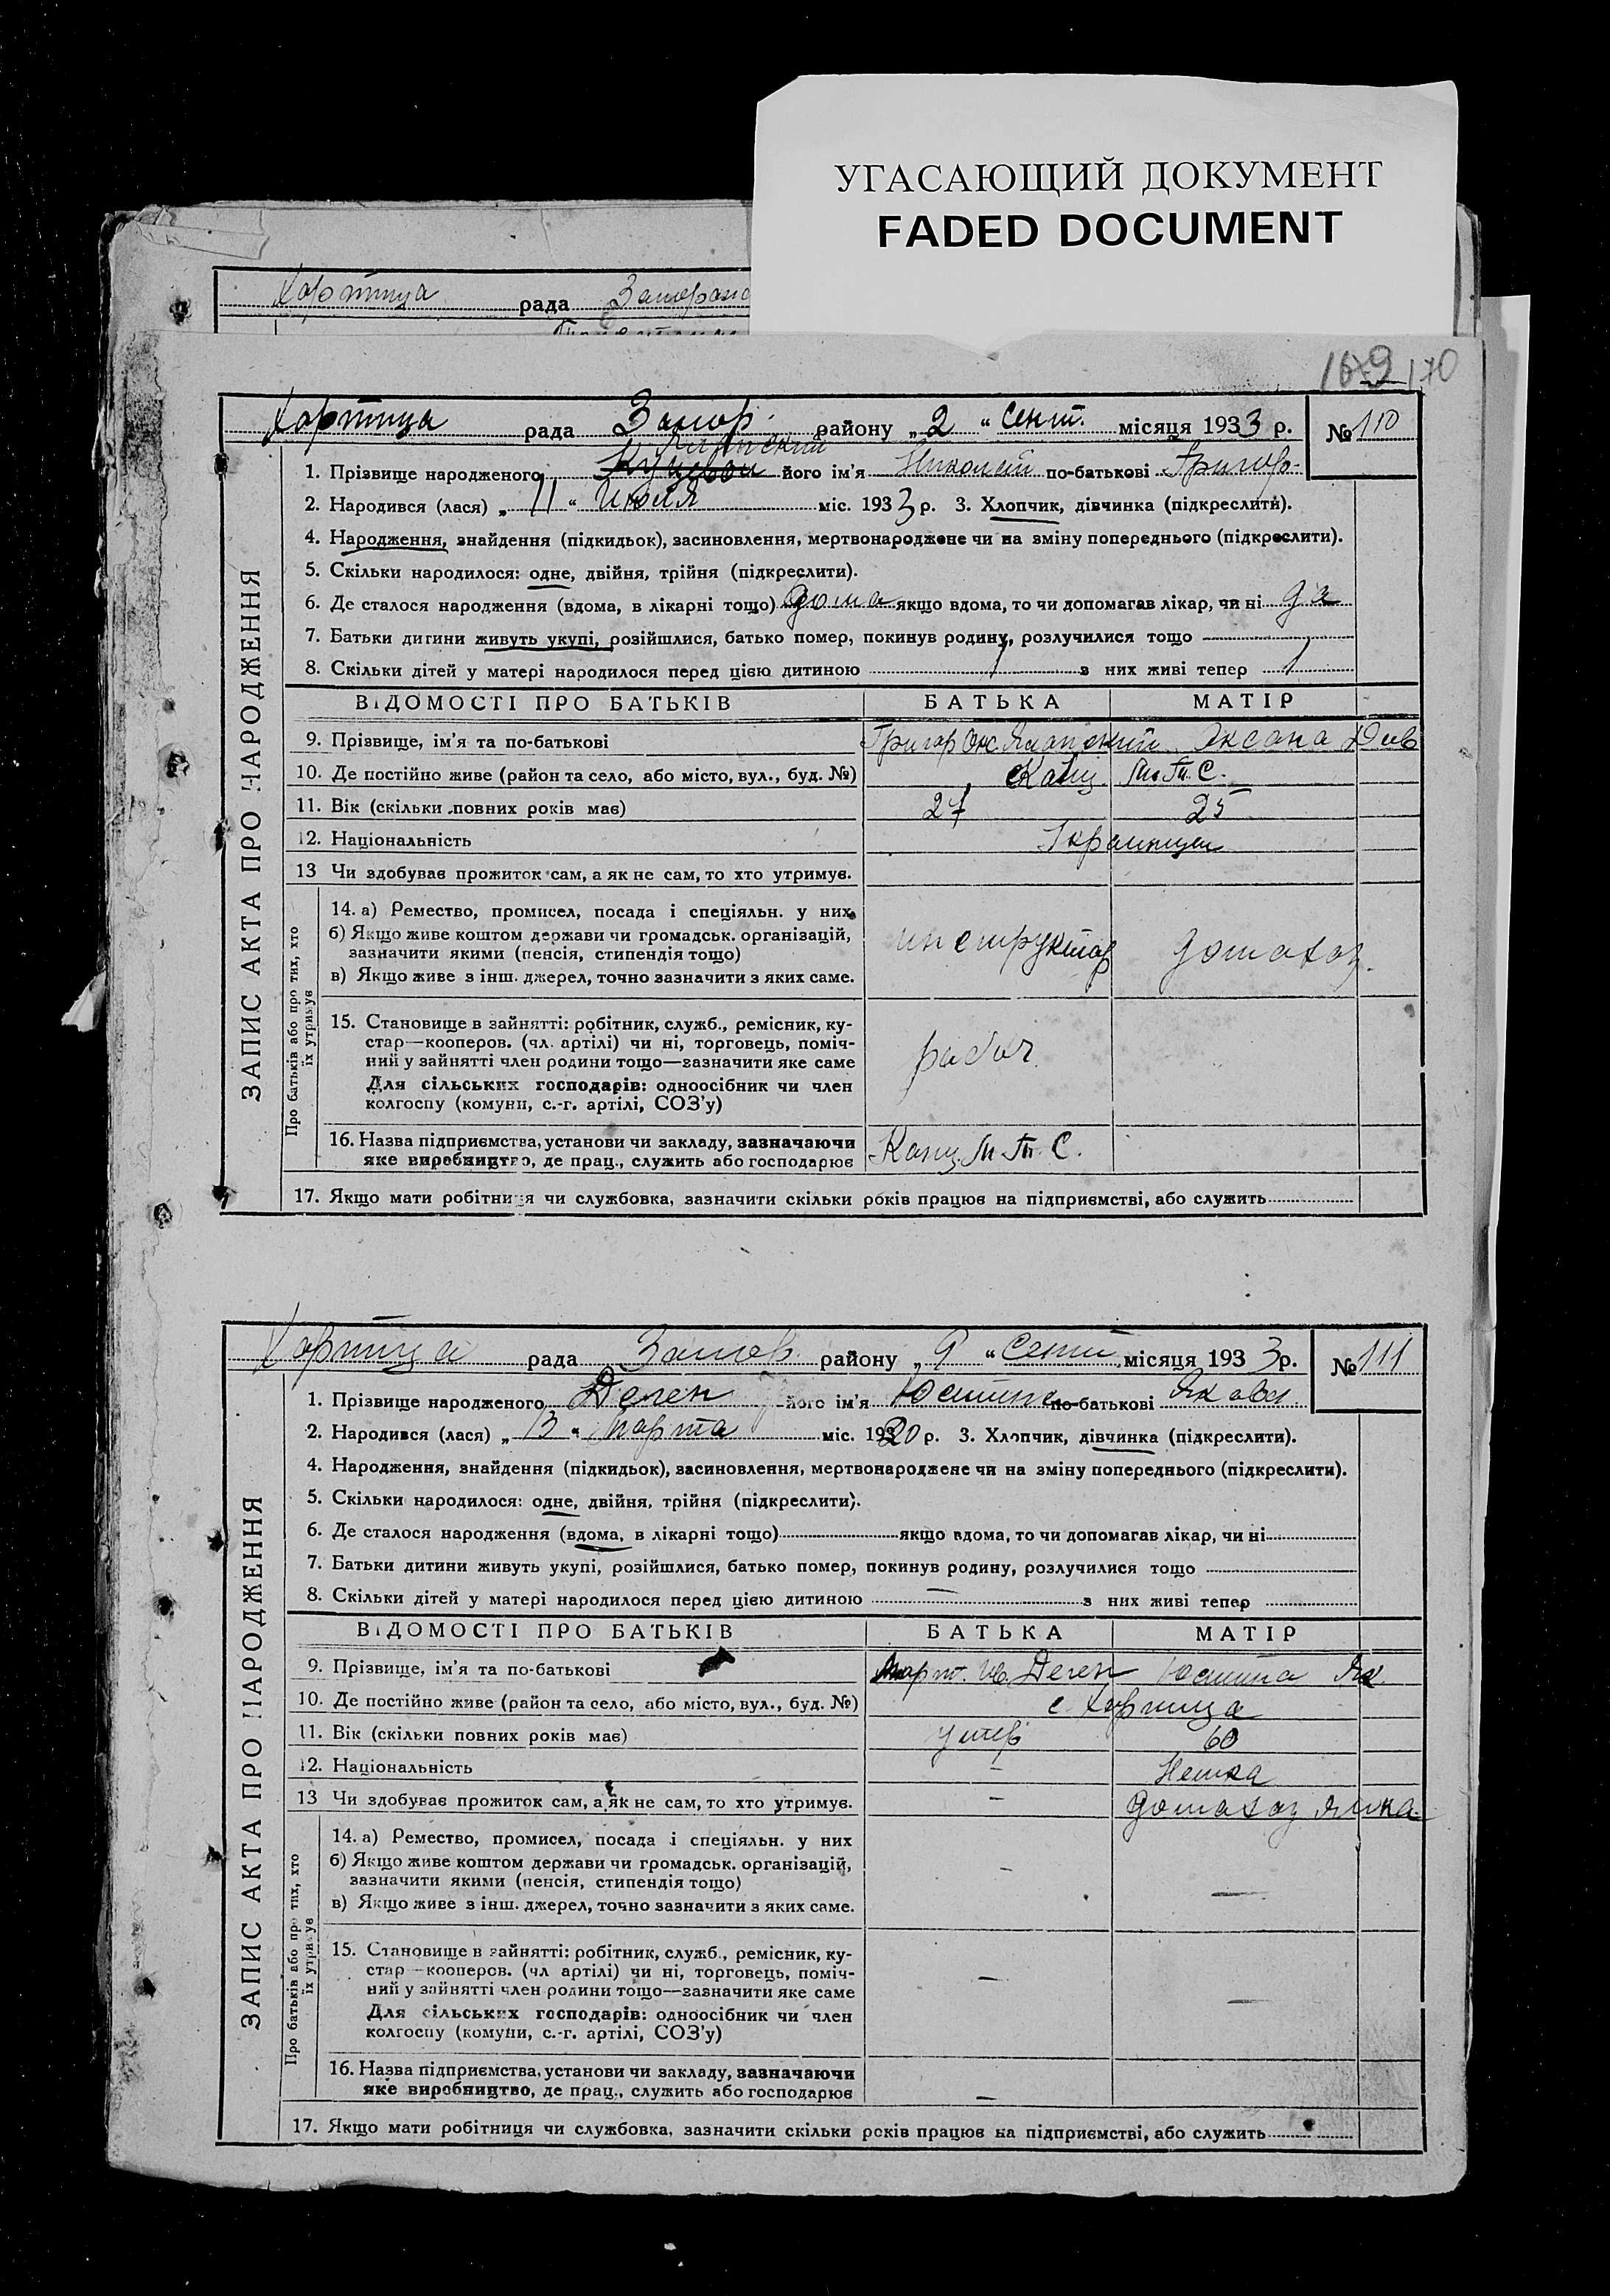 УГАСАЮЩИЙ ДОКУМЕНТ
FADED DOCUMENT
Хортица рада Запорож
169 170
Хортица рада Запор. району „ 2 “ Сент. місяця 1933 р. № 110
1. Прізвище народженого його ім’я Николай по-батькові Григор.
2. Народився (лася) „ 11 “ Июля міс. 1933 р. 3. Хлопчик, дівчинка (підкреслити).
4. Народження, знайдення (підкидьок), засиновлення, мертвонароджене чи на зміну попереднього (підкреслити).
5. Скільки народилося: одне, двійня, трійня (підкреслити).
6. Де сталося народження (вдома, в лікарні тощо) дома якщо вдома, то чи допомагав лікар, чи ні да
7. Батьки дитини живуть укупі, розійшлися, батько помер, покинув родину, розлучилися тощо
8. Скільки дітей у матері народилося перед цією дитиною 1 з них живі тепер 1
ЗАПИС АКТА ПРО НАРОДЖЕННЯ
ВІДОМОСТІ ПРО БАТЬКІВ БАТЬКА МАТІР
9. Прізвище, ім’я та по-батькові Григор Оксана
10. Де постійно живе (район та село, або місто, вул., буд. №) Канц. М.Т.С.
11. Вік (скільки повних років має) 27 25
12. Національність Украинцы
13 Чи здобуває прожиток сам, а як не сам, то хто утримує.
Про батьків або про тих, хто їх утримує
14. а) Ремество, промисел, посада і спеціяльн. у них
б) Якщо живе коштом держави чи громадськ. організацій,
зазначити якими (пенсія, стипендія тощо) инструктор домахоз.
в) Якщо живе з інш. джерел, точно зазначити з яких саме.
15. Становище в зайнятті: робітник, служб., ремісник, ку-
стар—кооперов. (чл. артілі) чи ні, торговець, поміч-
ний у зайнятті член родини тощо—зазначити яке саме рабоч.
Для сільських господарів: одноосібник чи член
колгоспу (комуни, с.-г. артілі, СОЗ’у)
16. Назва підприємства, установи чи закладу, зазначаючи Канц. М.Т.С.
яке виробництво, де прац., служить або господарює
17. Якщо мати робітниця чи службовка, зазначити скільки років працює на підприємстві, або служить
Хортица рада Запор. району „ 9 “ Сент. місяця 1933 р. № 111
1. Прізвище народженого Деген його ім’я Юстина по-батькові Яковл.
2. Народився (лася) „ 13 “ Марта міс. 1920 р. 3. Хлопчик, дівчинка (підкреслити).
4. Народження, знайдення (підкидьок), засиновлення, мертвонароджене чи на зміну попереднього (підкреслити).
5. Скільки народилося: одне, двійня, трійня (підкреслити).
6. Де сталося народження (вдома, в лікарні тощо) якщо вдома, то чи допомагав лікар, чи ні
7. Батьки дитини живуть укупі, розійшлися, батько помер, покинув родину, розлучилися тощо
8. Скільки дітей у матері народилося перед цією дитиною — з них живі тепер
ЗАПИС АКТА ПРО НАРОДЖЕННЯ
ВІДОМОСТІ ПРО БАТЬКІВ БАТЬКА МАТІР
9. Прізвище, ім’я та по-батькові Март. Ив. Деген Юстина Як.
10. Де постійно живе (район та село, або місто, вул., буд. №) с. Хортица
11. Вік (скільки повних років має) умер 60
12. Національність — Немка
13 Чи здобуває прожиток сам, а як не сам, то хто утримує. — домахоз
Про батьків або про тих, хто їх утримує
14. а) Ремество, промисел, посада і спеціяльн. у них
б) Якщо живе коштом держави чи громадськ. організацій, — —
зазначити якими (пенсія, стипендія тощо)
в) Якщо живе з інш. джерел, точно зазначити з яких саме.
15. Становище в зайнятті: робітник, служб., ремісник, ку-
стар—кооперов. (чл артілі) чи ні, торговець, поміч- — —
ний у зайнятті член родини тощо—зазначити яке саме
Для сільських господарів: одноосібник чи член
колгоспу (комуни, с.-г. артілі, СОЗ’у)
16. Назва підприємства, установи чи закладу, зазначаючи
яке виробництво, де прац., служить або господарює —
17. Якщо мати робітниця чи службовка, зазначити скільки років працює на підприємстві, або служить